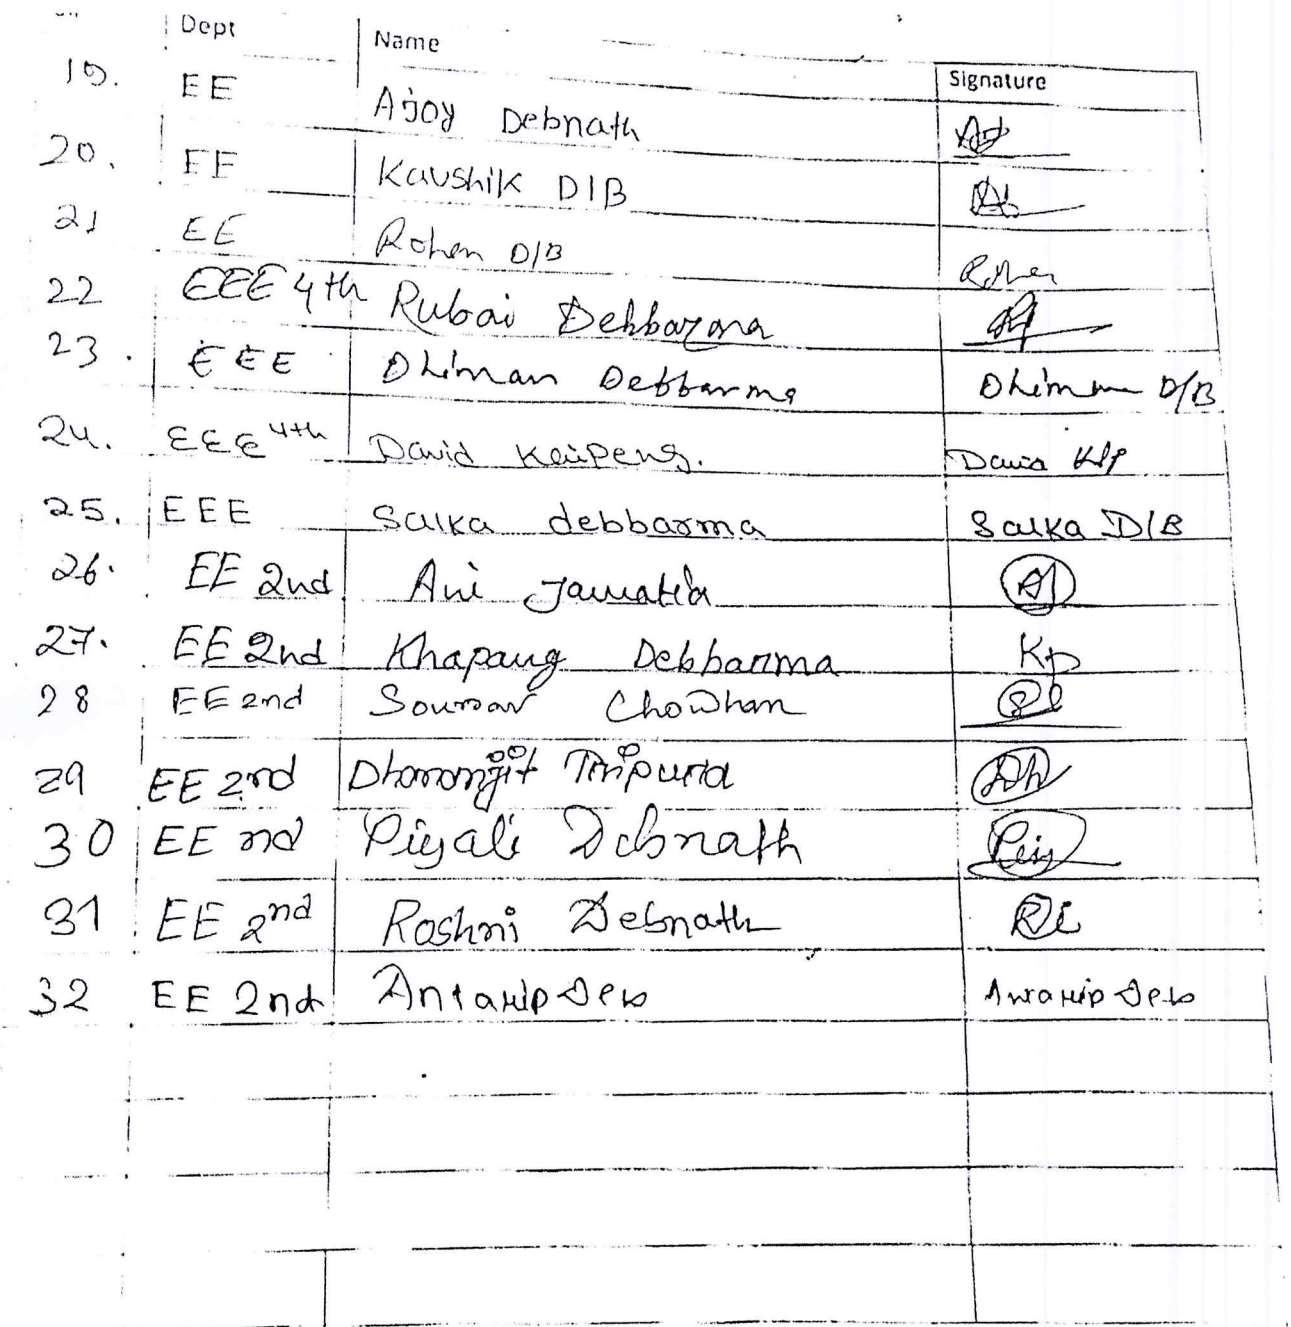 Dept Name Signature
19. EE Ajoy Debnath
20. EE Kaushik D/B
21 EE Rohen D/B Rohen
22 EEE 4th Rubai Debbarma
23. EEE Dhiman Debbarma Dhiman D/B
24. EEE 4th David Kaipeng. David Klp
25. EEE Salka debbarma Salka D/B
26. EE 2nd Ani Jamatia AJ
27. EE 2nd Khapang Debbarma Kp
28 EE 2nd Sourav Chowhan
29 EE 2nd Dhoronjit Tripura Dh
30 EE nd Piyali Debnath Piy
31 EE 2nd Roshni Debnath
32 EE 2nd Antarip Deb Antarip Deb